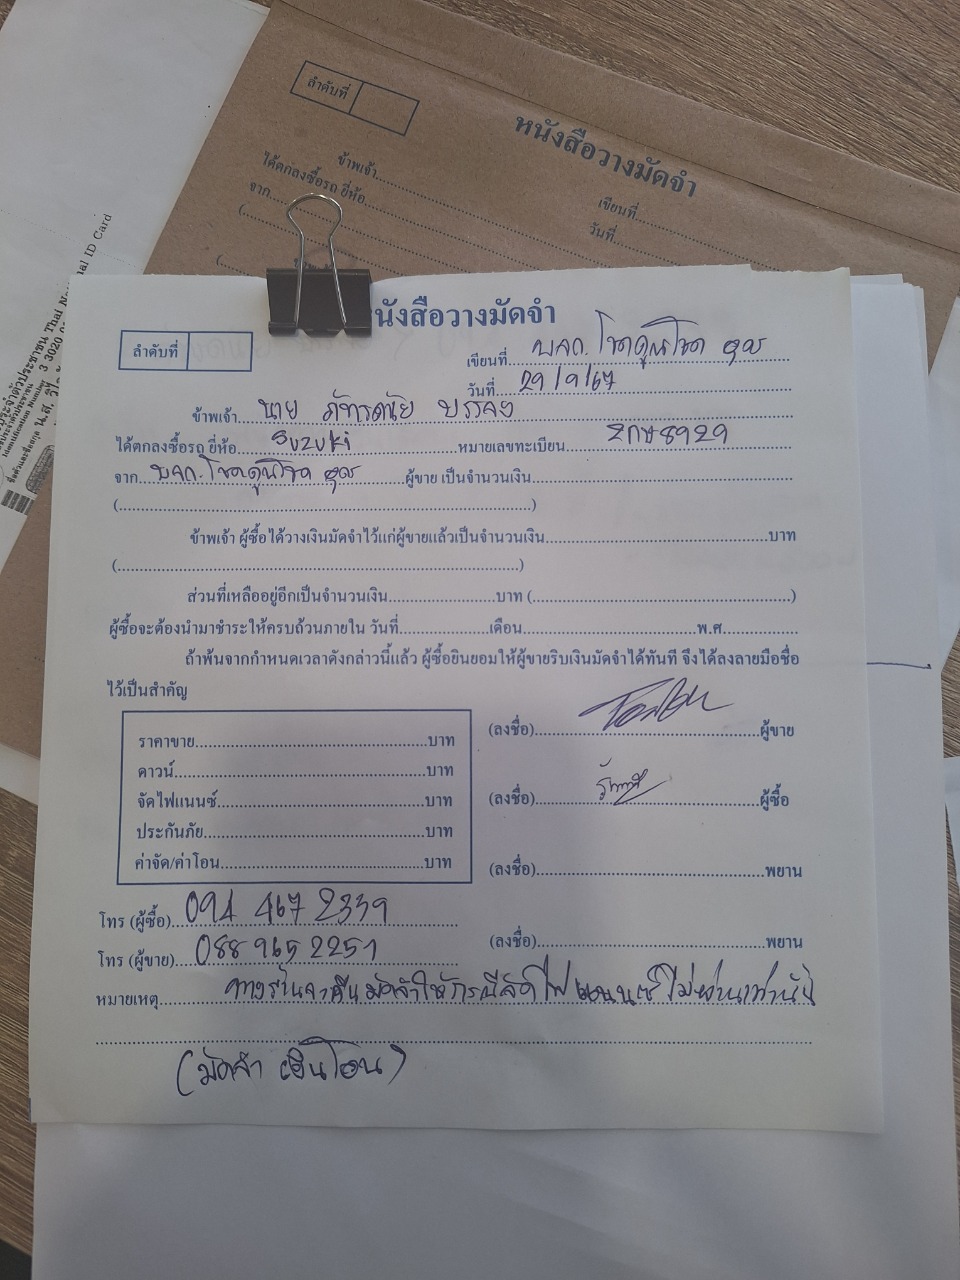 ลำดับที่
หนังสือวางมัดจำ
ข้าพเจ้า
เขียนที่
ได้ตกลงซื้อรถ ยี่ห้อ
วันที่
จาก
(
(
ประจำตัวประชาชน Thai National ID Card
Identification Number 3 3020 0
ชื่อตัวและชื่อสกุล น.ส.
นังสือวางมัดจำ
ลำดับที่
เขียนที่ หจก. โชคดูนโชค
วันที่ 29/9/67
ข้าพเจ้า นาย ภัทรดนัย บรรจง
ได้ตกลงซื้อรถ ยี่ห้อ Suzuki หมายเลขทะเบียน 2กษ8929
จาก ผู้ขาย เป็นจำนวนเงิน
( )
ข้าพเจ้า ผู้ซื้อได้วางเงินมัดจำไว้แก่ผู้ขายแล้วเป็นจำนวนเงิน บาท
( )
ส่วนที่เหลืออยู่อีกเป็นจำนวนเงิน บาท ( )
ผู้ซื้อจะต้องนำมาชำระให้ครบถ้วนภายใน วันที่ เดือน พ.ศ.
ถ้าพ้นจากกำหนดเวลาดังกล่าวนี้แล้ว ผู้ซื้อยินยอมให้ผู้ขายริบเงินมัดจำได้ทันที จึงได้ลงลายมือชื่อ
ไว้เป็นสำคัญ
ราคาขาย บาท
ดาวน์ บาท
จัดไฟแนนซ์ บาท
ประกันภัย บาท
ค่าจัด/ค่าโอน บาท
(ลงชื่อ) ผู้ขาย
(ลงชื่อ) ผู้ซื้อ
(ลงชื่อ) พยาน
(ลงชื่อ) พยาน
โทร (ผู้ซื้อ) 094 467 2339
โทร (ผู้ขาย) 088 965 2251
หมายเหตุ ทางร้านจะคืนมัดจำให้กรณีจัดไฟแนนซ์ไม่ผ่านเท่านั้น
(มัดจำ เงินโอน)